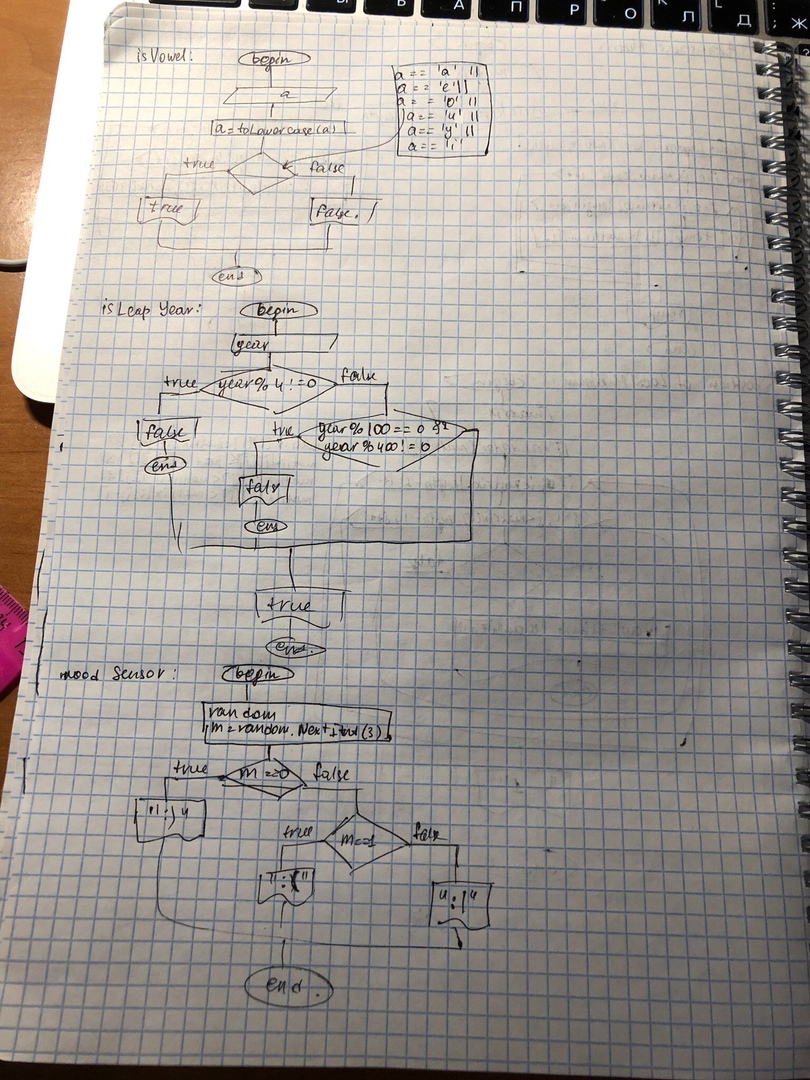 П
Р
О
Л
Д
Ж
isVowel:
begin
a
a == 'a' ||
a == 'e' ||
a == 'o' ||
a == 'u' ||
a == 'y' ||
a == 'i'
a = toLowerCase(a)
true
false
true
false.
end
is Leap Year:
begin
year
true
year % 4 != 0
false
false
end
true
year % 100 == 0 &&
year % 400 != 0
end
true
end.
mood Sensor:
begin
random
m = random.NextInt(3)
true
m == 0
false
":)"
true
m == 1
false
":("
":|"
end.